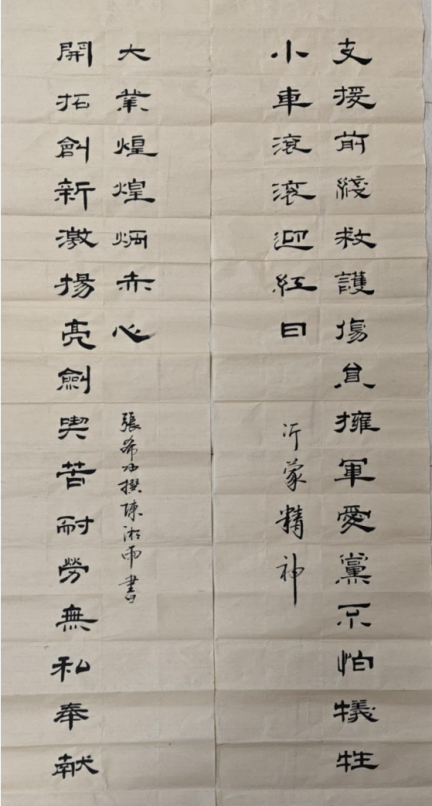 支援前綫救護傷員擁軍愛黨不怕犧牲
小車滾滾迎紅日
沂蒙精神
開拓創新激揚亮劍喫苦耐勞無私奉献
大業煌煌炳赤心
張希撰陳湘雨書